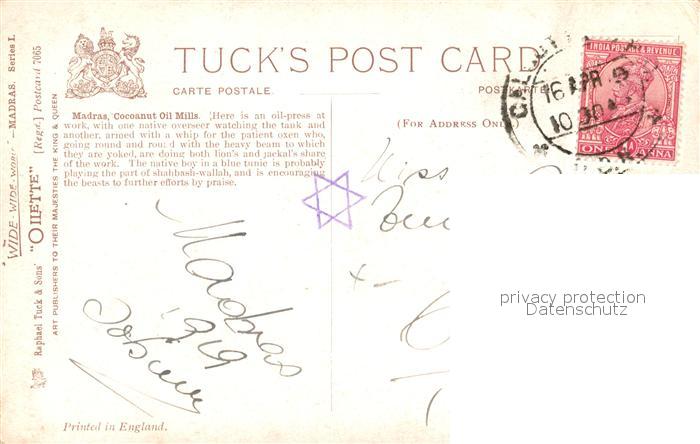 "WIDE-WIDE-WORLD"—MADRAS. Series I.
Raphael Tuck & Sons' "OILETTE" [Regd.] Postcard 7065
ART PUBLISHERS TO THEIR MAJESTIES THE KING & QUEEN
TUCK'S POST CARD
CARTE POSTALE.
POSTKARTE
Madras, Cocoanut Oil Mills. Here is an oil-press at
work, with one native overseer watching the tank and
another, armed with a whip for the patient oxen who,
going round and round with the heavy beam to which
they are yoked, are doing both lion's and jackal's share
of the work. The native boy in a blue tunic is probably
playing the part of shahbash-wallah, and is encouraging
the beasts to further efforts by praise.
(FOR ADDRESS ONL
CALCUTT
16 APR
10 30 A
INDIA POSTAGE & REVENUE
ONE ANNA
Miss
Madras
1919
Printed in England.
privacy protection
Datenschutz